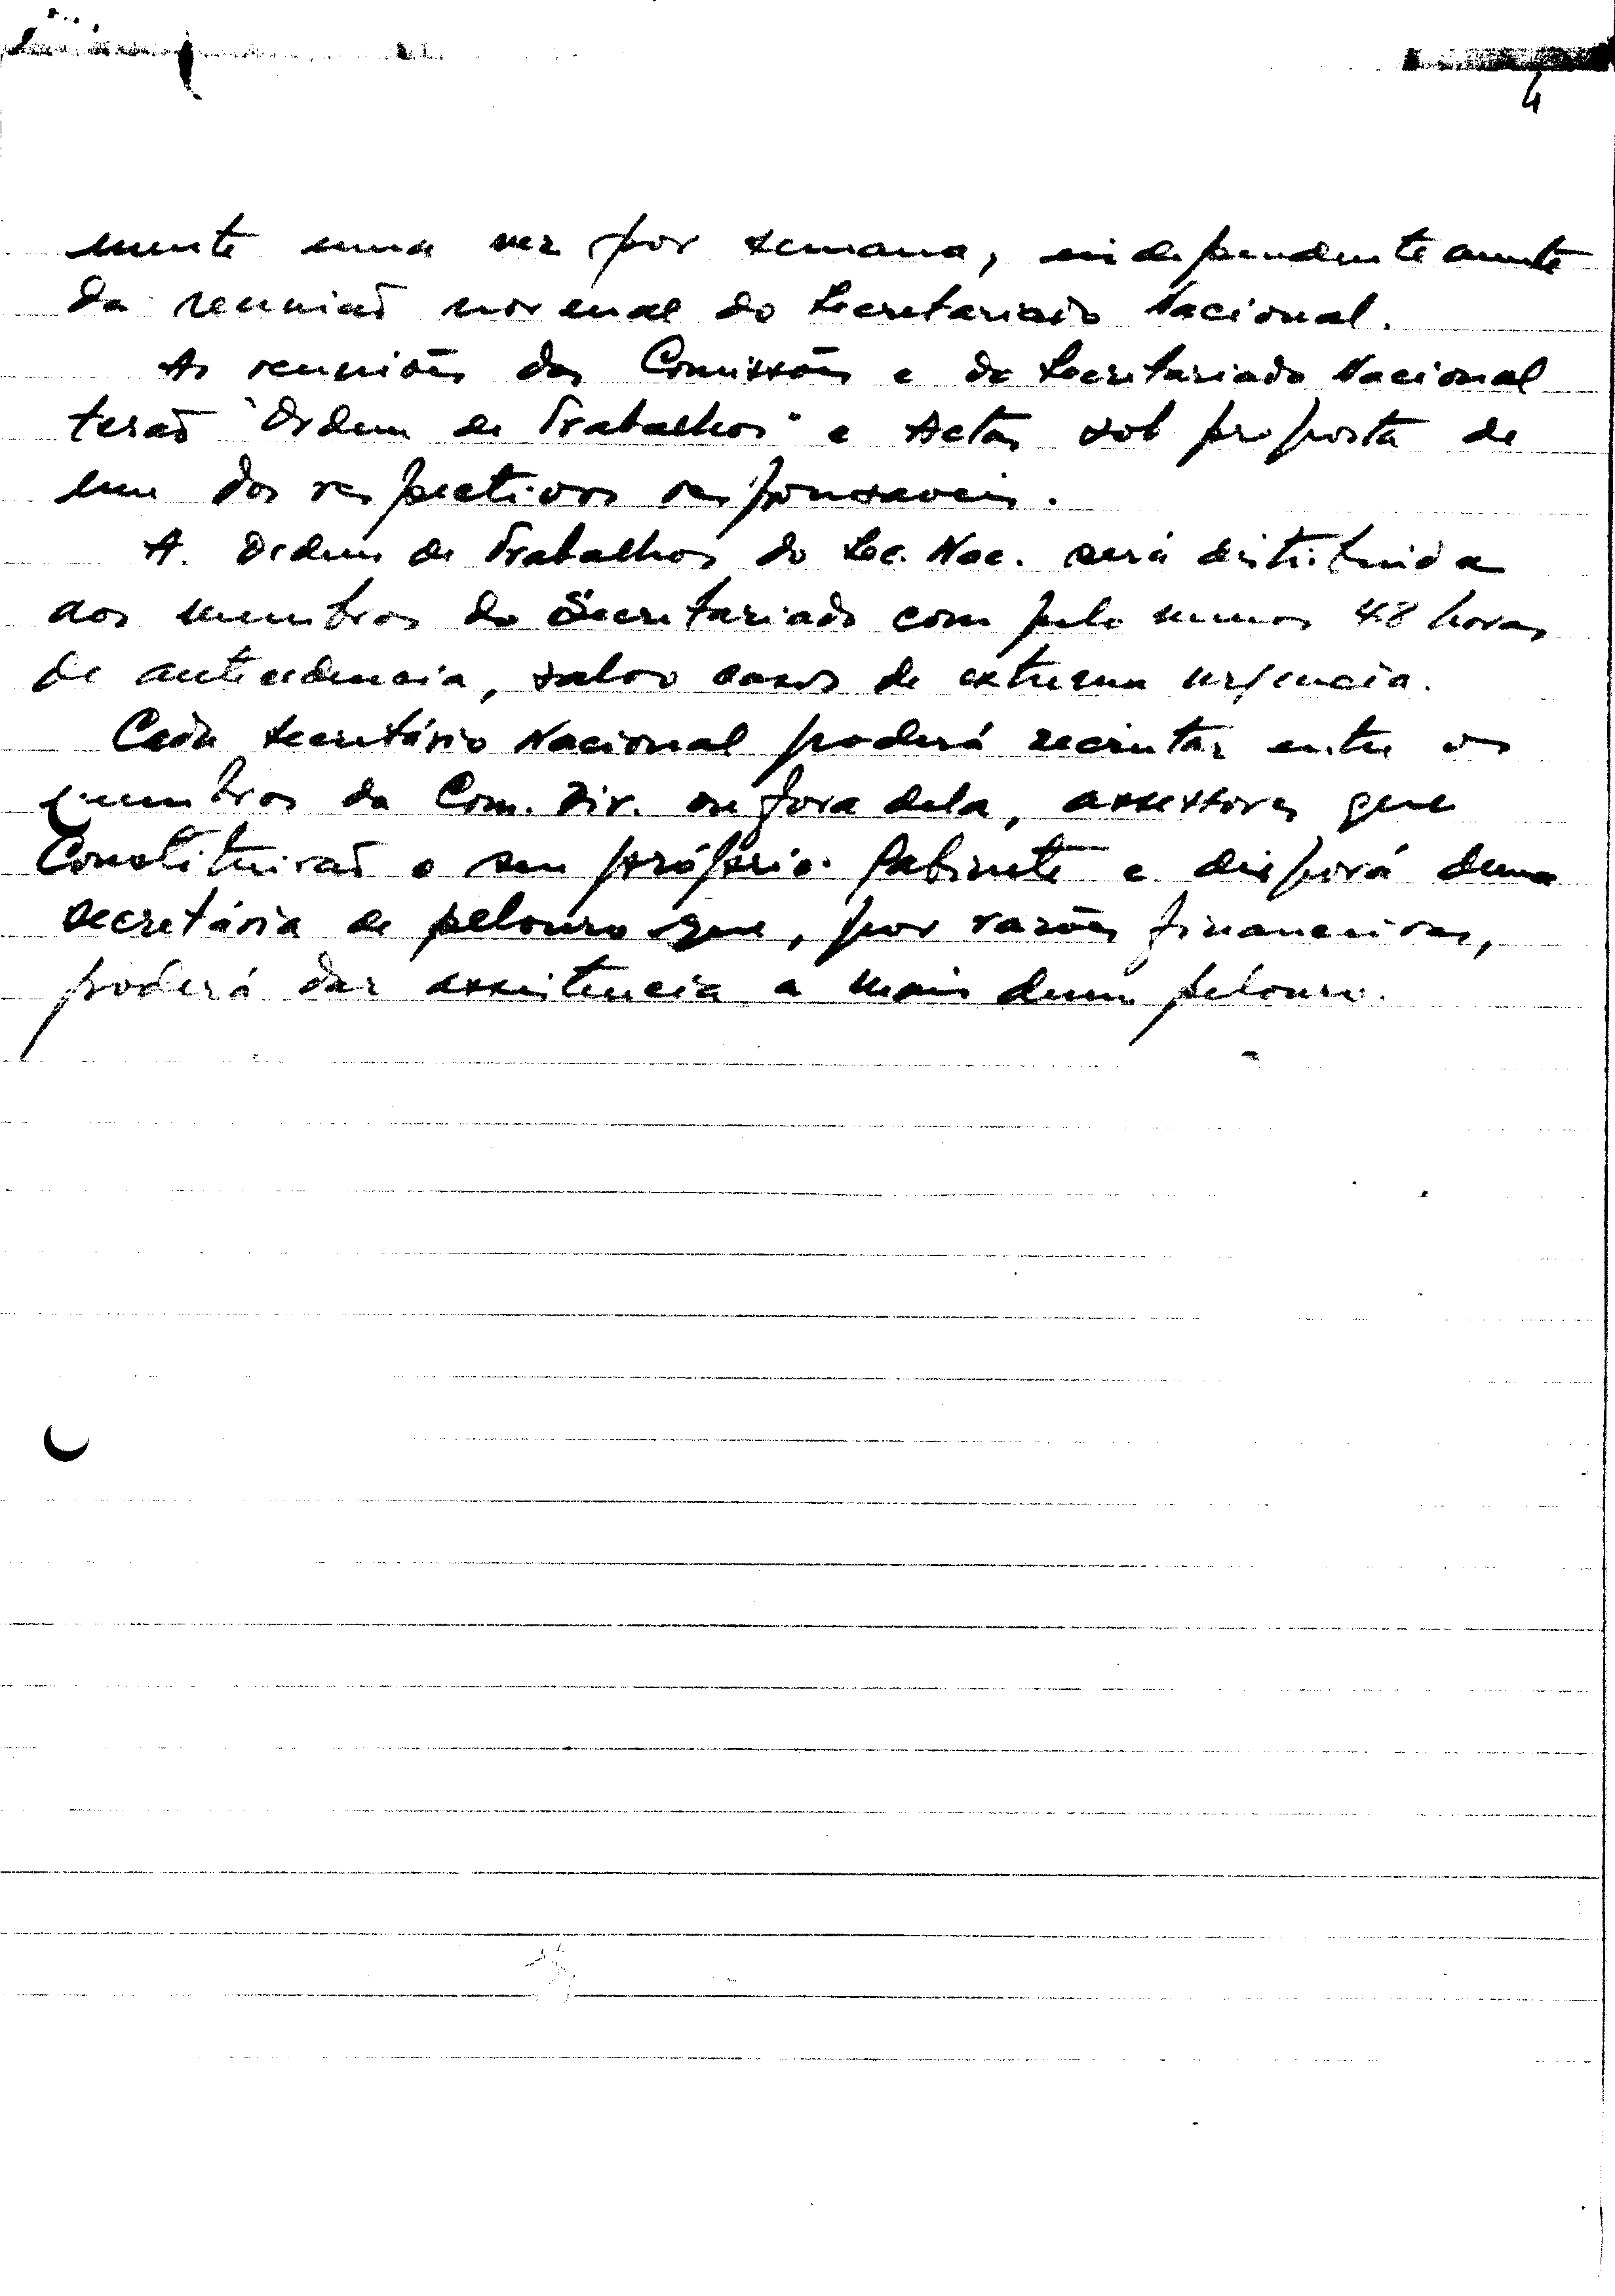 4
mente uma vez por semana, independentemente
da reunião normal do Secretariado Nacional.
As reuniões das Comissões e do Secretariado Nacional
terão "Ordem de Trabalhos" e Actas sob proposta de
um dos respectivos responsaveis.
A. Ordem de Trabalhos do Sec. Nac. será distribuida
aos membros do Secretariado com pelo menos 48 horas
de antecedencia, salvo casos de extrema urgencia.
Cada Secretário Nacional poderá recrutar entre os
membros da Com. Dir. ou fora dela, assessores que
Constituirão o seu próprio Gabinete e disporá duma
secretária de pelouro que, por razões financeiras,
poderá dar assistencia a mais dum pelouro.